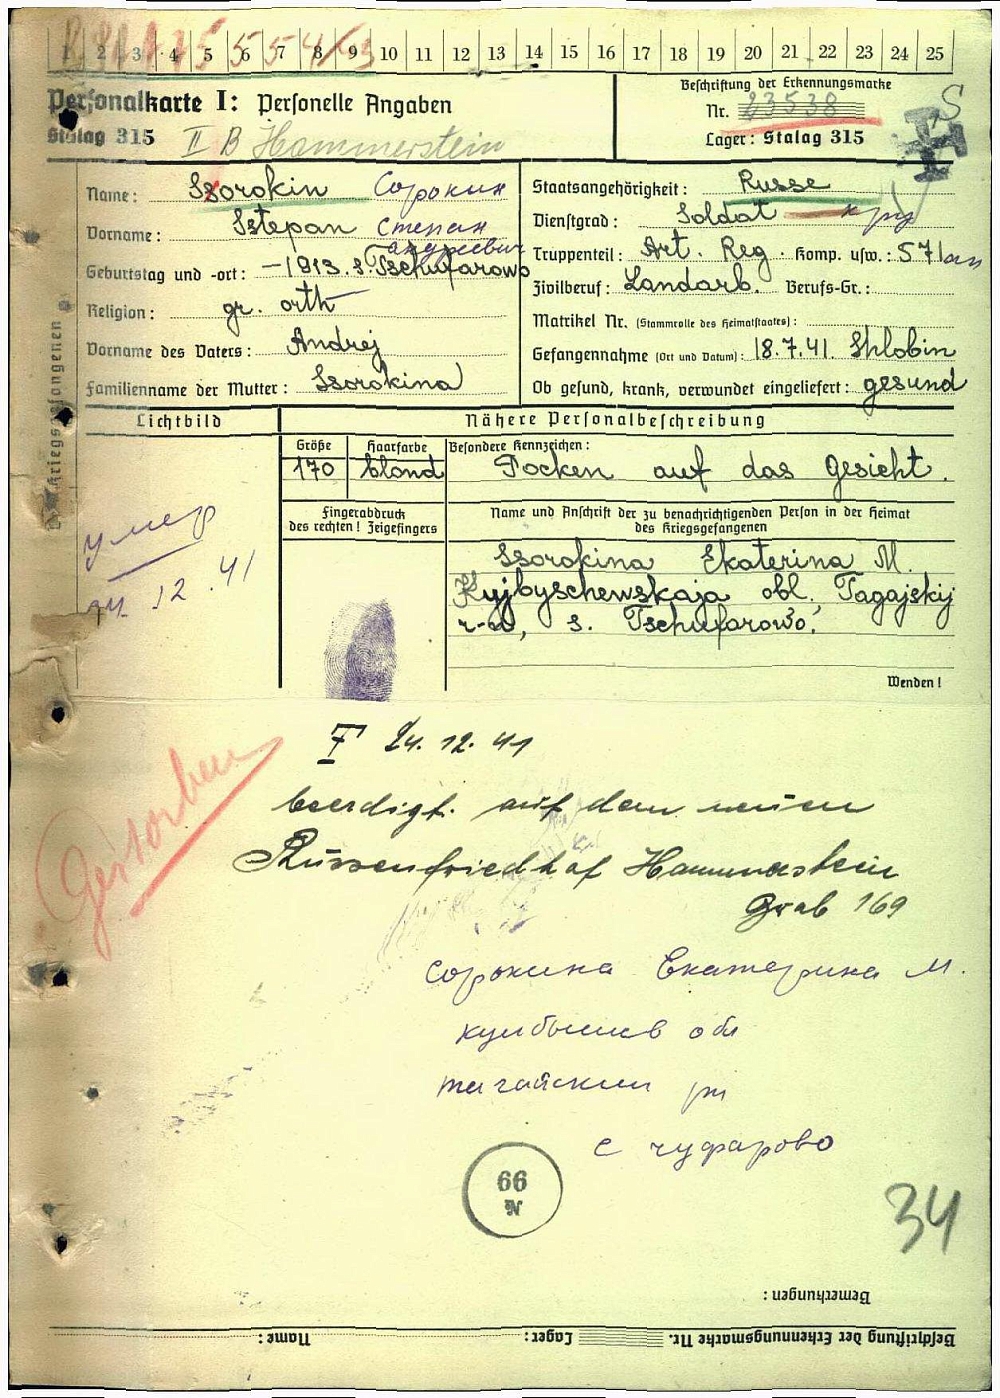 1 2 3 4 5 6 7 8 9 10 11 12 13 14 15 16 17 18 19 20 21 22 23 24 25
Personalkarte I: Personelle Angaben
Stalag 315 II B Hammerstein
Beschriftung der Erkennungsmarke
Nr. 23538
Lager: Stalag 315
S
Name: Ssorokin Сорокин
Vorname: Sstepan Степан
Андреевич
Geburtstag und -ort: –1913. s. Tschufarowo
Religion: gr. orth
Vorname des Vaters: Andrej
Familienname der Mutter: Ssorokina
Staatsangehörigkeit: Russe
Dienstgrad: Soldat
Truppenteil: Art. Reg. Komp. usw.: 571
Zivilberuf: Landarb. Berufs-Gr.:
Matrikel Nr. (Stammrolle des Heimatstaates):
Gefangennahme (Ort und Datum): 18.7.41. Shlobin
Ob gesund, krank, verwundet eingeliefert: gesund
Kriegsgefangenen
Lichtbild
Nähere Personalbeschreibung
Größe Haarfarbe Besondere Kennzeichen:
170 blond Pocken auf das Gesicht.
Fingerabdruck
des rechten! Zeigefingers
Name und Anschrift der zu benachrichtigenden Person in der Heimat
des Kriegsgefangenen
Ssorokina Ekaterina M.
Kujbyschewskaja obl., Tagajskij
r-n, s. Tschufarowo.
Wenden!
умер
24 12. 41
24. 12. 41
Gestorben
beerdigt. auf dem neuen
Russenfriedhof Hammerstein
Grab 169
Сорокина Екатерина М.
куйбышев обл
тагайский рн
с чуфарово
66
№
34
Bemerkungen:
Beschriftung der Erkennungsmarke Nr. Lager: Name: